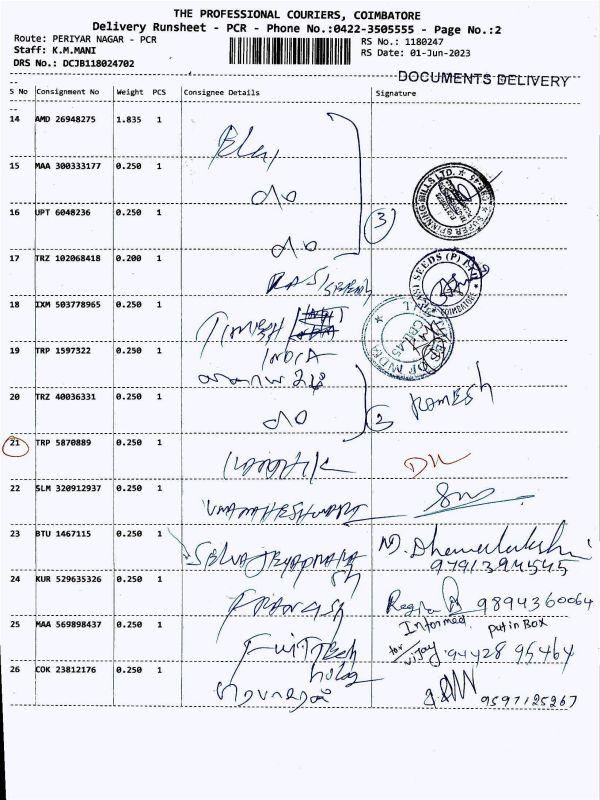 THE PROFESSIONAL COURIERS, COIMBATORE
Delivery Runsheet - PCR - Phone No.:0422-3505555 - Page No.:2
Route: PERIYAR NAGAR - PCR
RS No.: 1180247
Staff: K.M.MANI
RS Date: 01-Jun-2023
DRS No.: DCJB118024702
DOCUMENTS DELIVERY
S No Consignment No Weight PCS Consignee Details Signature
14 AMD 26948275 1.835 1
15 MAA 300333177 0.250 1
do
16 UPT 6048236 0.250 1
3
do
SUPER SPINNING MILLS LTD.
17 TRZ 102068418 0.200 1
RASI Seeds
RASI SEEDS (P)
18 IXM 503778965 0.250 1
TIMES
INDIA
TIMES OF INDIA
19 TRP 1597322 0.250 1
20 TRZ 40036331 0.250 1
do
2
RAMESH
21 TRP 5870889 0.250 1
22 SLM 320912937 0.250 1
UMAMAHESHWARI
23 BTU 1467115 0.250 1
9791394545
24 KUR 529635326 0.250 1
9894360064
25 MAA 569898437 0.250 1
Informed put in Box
for Vijay 94428 95464
26 COK 23812176 0.250 1
9597125267